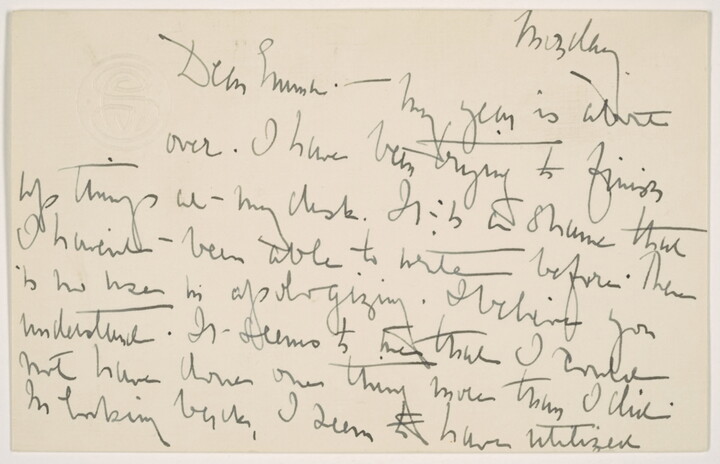 Dear Emma: — my year is about
over. I have been trying to finish
up things at my desk. It is a shame that
I haven't been able to write before. There
is no use in apologizing. I believe you
understand. It seems to me that I could
not have done one thing more than I did.
In looking back, I seem to have utilized